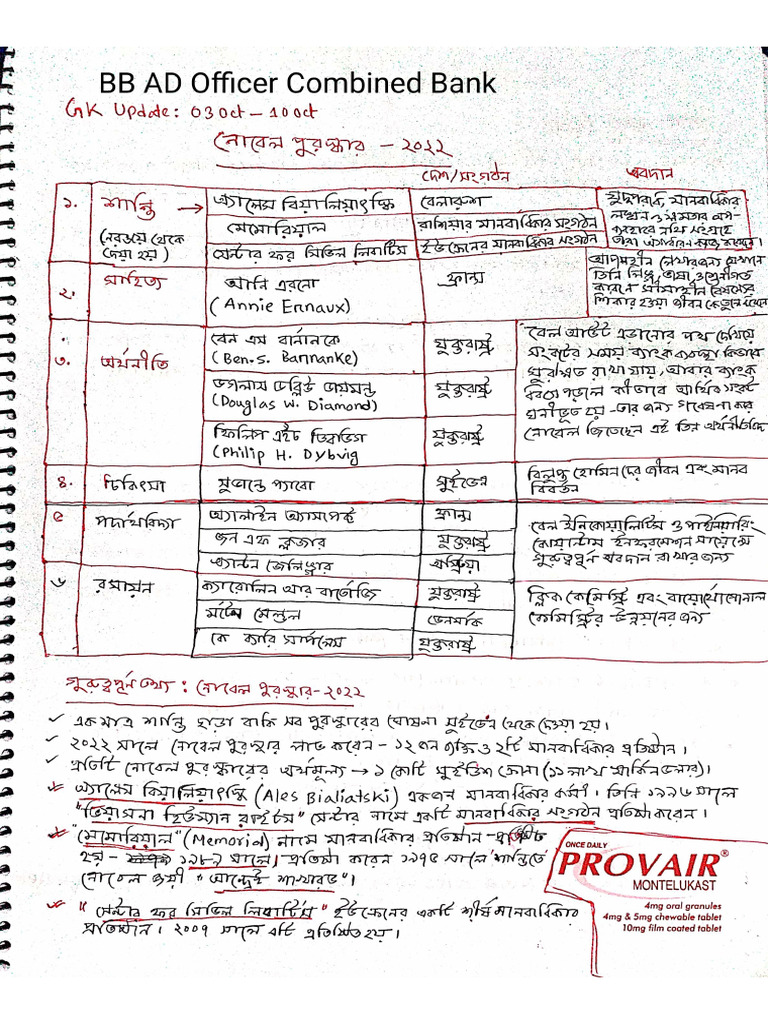 BB AD Officer Combined Bank
GK Update: 03 Oct – 10 Oct
নোবেল পুরস্কার – ২০২২
দেশ/সংগঠন অবদান
১. শান্তি → অ্যালেস বিয়ালিয়াৎস্কি বেলারুশ
(নরওয়ে থেকে দেয়া হয়) মেমোরিয়াল রাশিয়ার মানবাধিকার সংগঠন
সেন্টার ফর সিভিল লিবার্টিস ইউক্রেনের মানবাধিকার সংগঠন
যুদ্ধাপরাধ, মানবাধিকার
লঙ্ঘন ও ক্ষমতার অপ-
ব্যবহারের নথি সংগ্রহে
২. সাহিত্য আনি এরনো ফ্রান্স
(Annie Ernaux)
৩. অর্থনীতি বেন এস বার্নানকে যুক্তরাষ্ট্র
(Ben.S. Barnanke)
ডগলাস ডব্লিউ ডায়মন্ড যুক্তরাষ্ট্র
(Douglas W. Diamond)
ফিলিপ এইচ ডিবভিগ যুক্তরাষ্ট্র
(Philip H. Dybvig
বেল আউট এড়ানোর পথ দেখিয়ে
সংকটের সময় ব্যাংক ব্যবস্থা কিভাবে
সুরক্ষিত রাখা যায়, আবার ব্যাংক
কীভাবে আর্থিক সংকট
ঘনীভূত হয় – তার জন্য গবেষণা করে
নোবেল জিতেছেন এই তিন অর্থনীতিবিদ
৪. চিকিৎসা সুভান্তে প্যাবো সুইডেন বিলুপ্ত হোমিনদের জীবন এবং মানব
বিবর্তন
৫ পদার্থবিদ্যা অ্যালাইন অ্যাসপেক্ট ফ্রান্স
জন এফ ক্লজার যুক্তরাষ্ট্র
অ্যান্টন জেলিঙ্গার অস্ট্রিয়া
বেল ইনিকোয়ালিটিস ও পাইনিয়ারিং
কোয়ান্টাম ইনফরমেশন সায়েন্সে
গুরুত্বপূর্ণ অবদান রাখার জন্য
৬ রসায়ন ক্যারোলিন আর বার্তোজি যুক্তরাষ্ট্র
মর্টেন মেলডাল ডেনমার্ক
কে ব্যারি সার্পলেস যুক্তরাষ্ট্র
ক্লিক কেমিস্ট্রি এবং বায়োর্থোগোনাল
কেমিস্ট্রির উন্নয়নের জন্য
গুরুত্বপূর্ণ তথ্য : নোবেল পুরস্কার-২০২২
✓ একমাত্র শান্তি ছাড়া বাকি সব পুরস্কারের ঘোষণা সুইডেন থেকে দেওয়া হয়।
✓ ২০২২ সালে নোবেল পুরস্কার লাভ করেন – ১২ জন ব্যক্তি ও ২টি মানবাধিকার প্রতিষ্ঠান।
✓ প্রতিটি নোবেল পুরস্কারের অর্থমূল্য → ১ কোটি সুইডিশ ক্রোনা (১১ লাখ মার্কিন ডলার)।
* অ্যালেস বিয়ালিয়াৎস্কি (Ales Bialiatski) একজন মানবাধিকার কর্মী। তিনি ১৯৯৬ সালে
"ভিয়াসনা হিউম্যান রাইটস" সেন্টার নামে একটি মানবাধিকার সংগঠন প্রতিষ্ঠা করেন।
* "মেমোরিয়াল" (Memorial) নামে মানবাধিকার প্রতিষ্ঠান প্রতিষ্ঠিত
হয় – ১৯৮৭ সালে। প্রতিষ্ঠা করেন ১৯৭৫ সালে শান্তিতে
নোবেল জয়ী "আন্দ্রেই শাখারভ"।
* "সেন্টার ফর সিভিল লিবার্টিস" ইউক্রেনের একটি শীর্ষ মানবাধিকার
প্রতিষ্ঠান। ২০০৭ সালে এটি প্রতিষ্ঠিত হয়।
ONCE DAILY
PROVAIR®
MONTELUKAST
4mg oral granules
4mg & 5mg chewable tablet
10mg film coated tablet